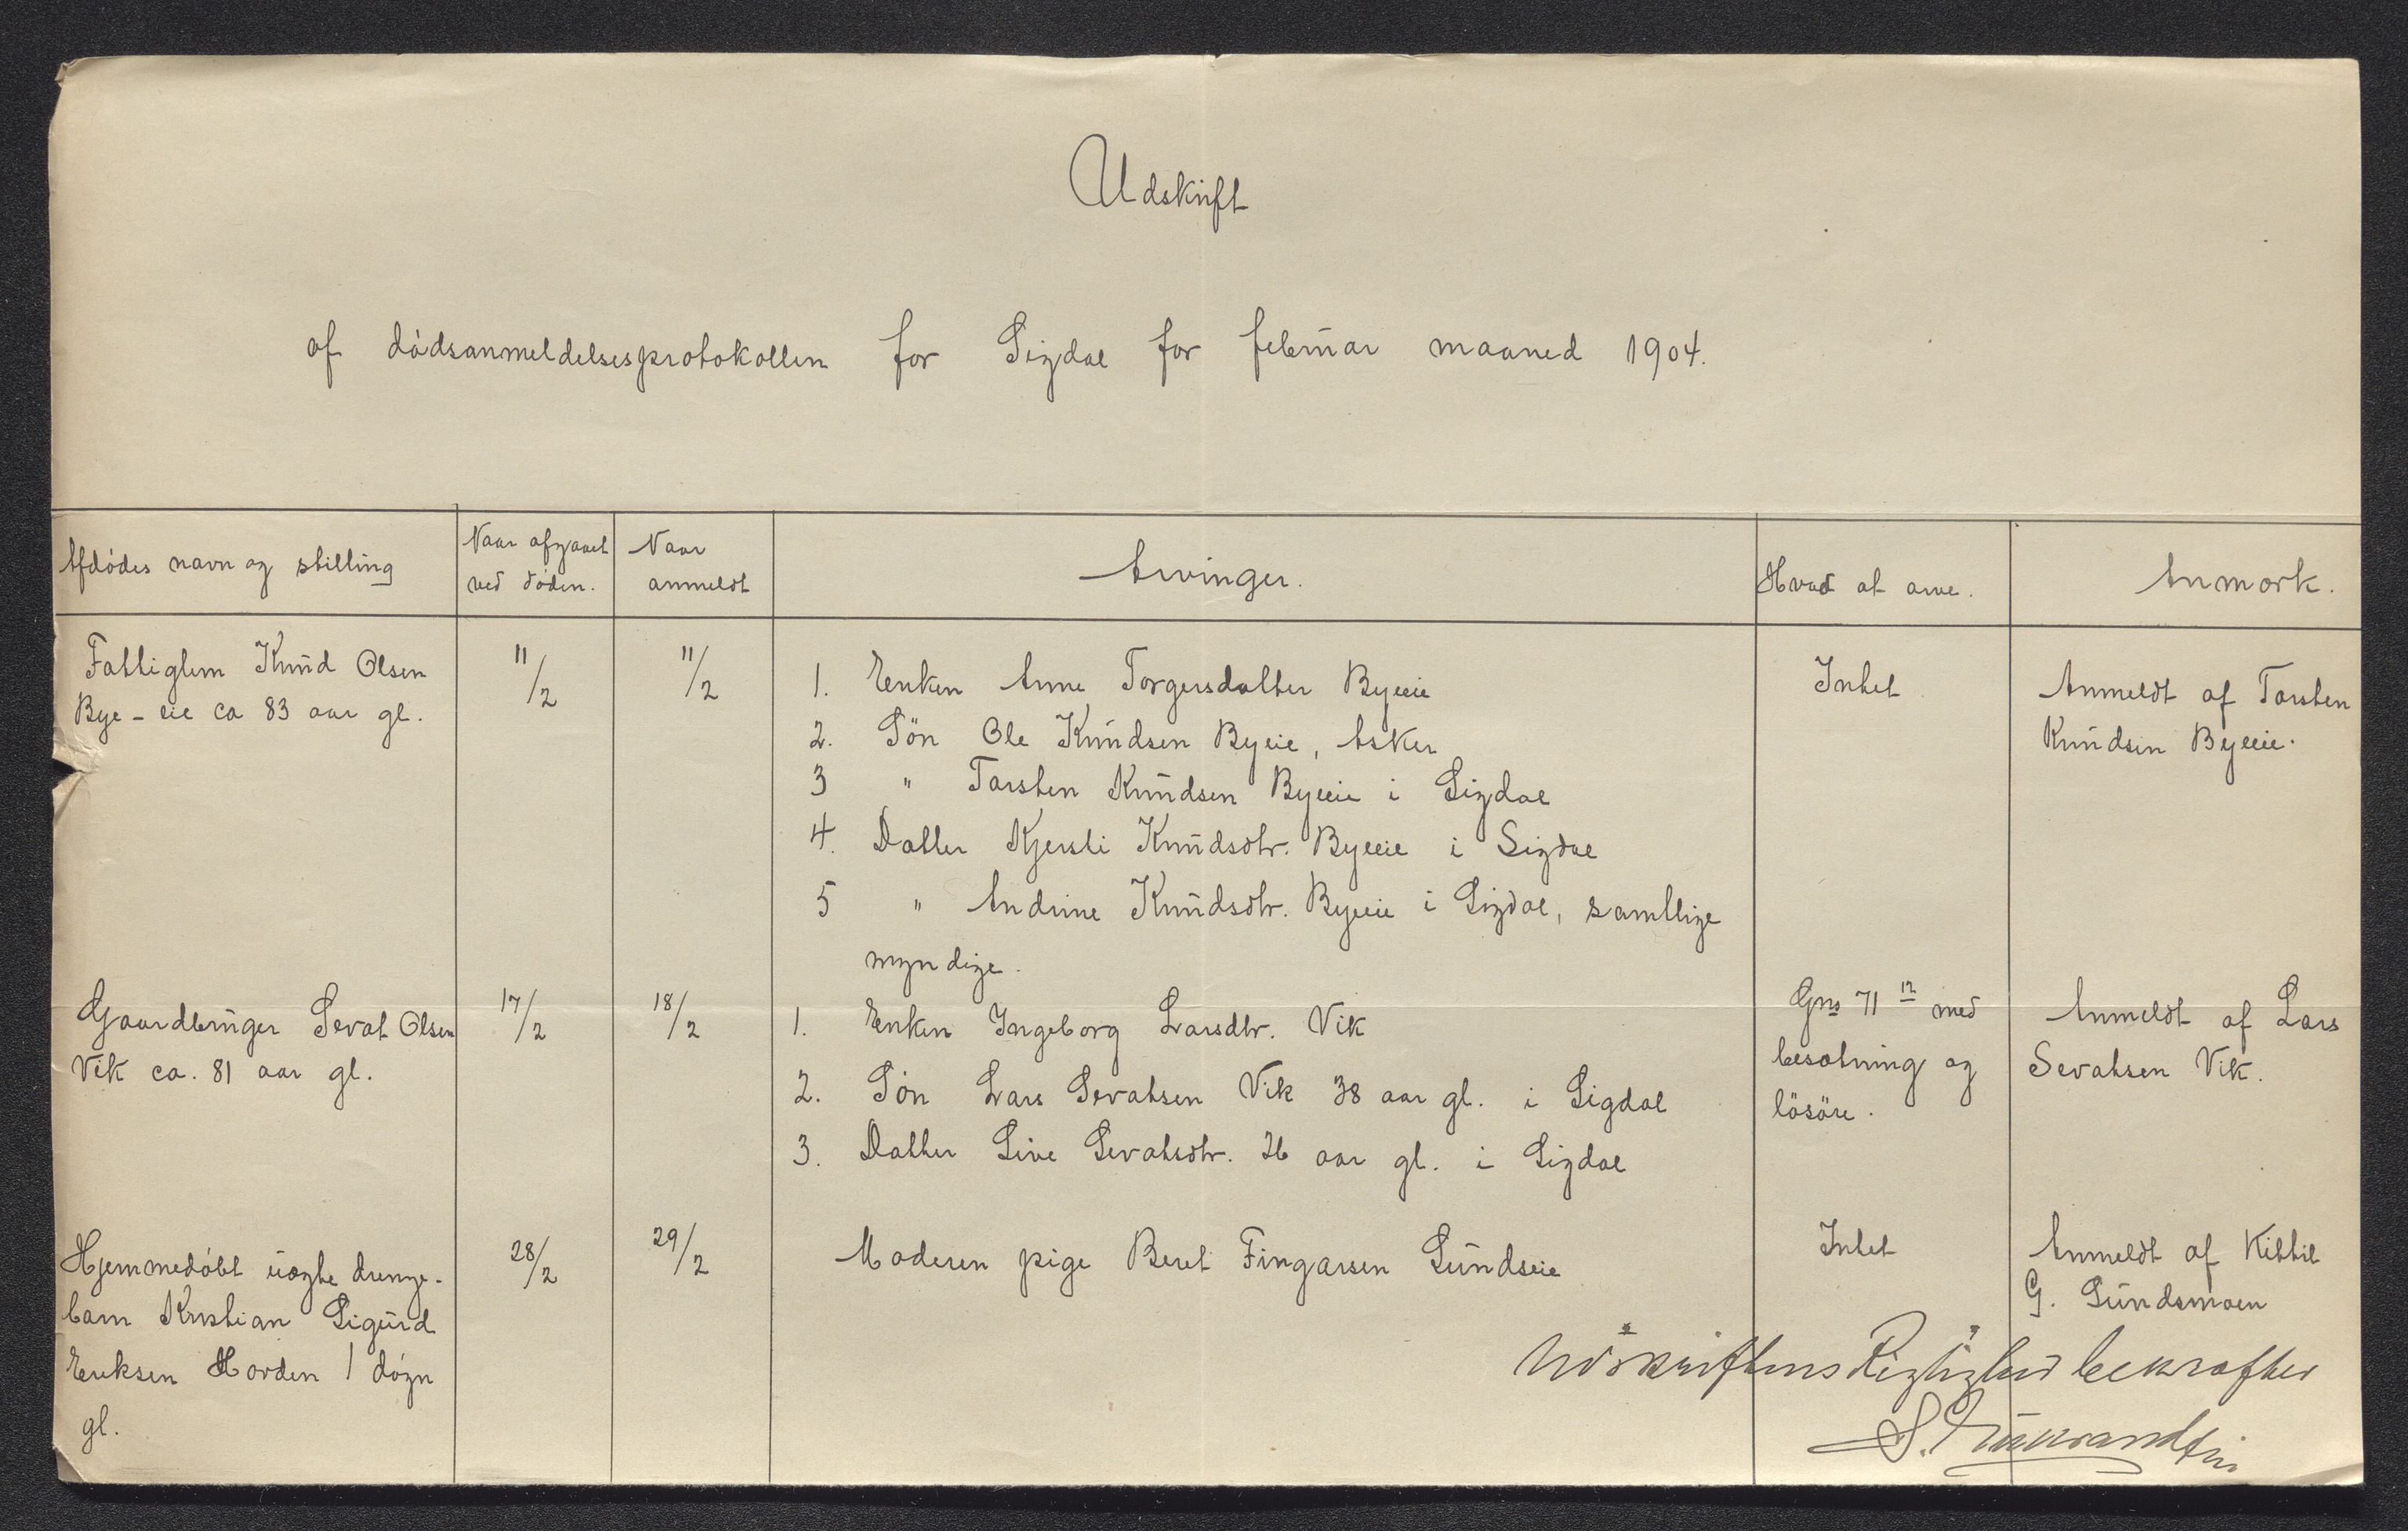 Udskrift
af dødsanmeldelsesprotokollen for Sigdal for februar maaned 1904.
Afdødes navn og stilling
Naar afgaaet
ved døden.
Naar
anmeldt
Arvinger.
Hvad at arve.
Anmærk.
Fattiglem Knud Olsen
Bye-eie ca 83 aar gl.
11/2
11/2
1. Enken Anne Torgersdatter Byeeie
2. Søn Ole Knudsen Byeie, Asker
3 " Torsten Knudsen Byeeie i Sigdal
4. Datter Kjersti Knudsdtr. Byeeie i Sigdal
5 " Andrine Knudsdtr. Byeeie i Sigdal, samtlige
myndige.
Intet
Anmeldt af Torsten
Knudsen Byeeie.
Gaardbruger Sevat Olsen
Vik ca. 81 aar gl.
17/2
18/2
1. Enken Ingeborg Larsdtr. Vik
2. Søn Lars Sevatsen Vik 38 aar gl. i Sigdal
3. Datter Live Sevatsdtr. 26 aar gl. i Sigdal
Gno 71 12 med
besætning og
løsøre.
Anmeldt af Lars
Sevatsen Vik.
Hjemmedøbt uægte drenge-
barn Kristian Sigurd
Eriksen Horden 1 døgn
gl.
28/2
29/2
Moderen pige Beret Fingarsen Sundseie
Intet
Anmeldt af Kittil
G. Sundsmoen
Udskriftens Rigtighed bekræftes
S.